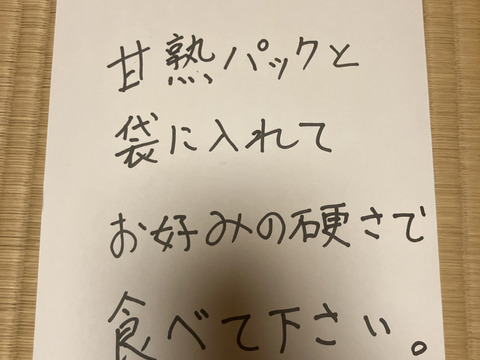 甘熟パックと
袋に入れて
お好みの硬さで
食べて下さい。